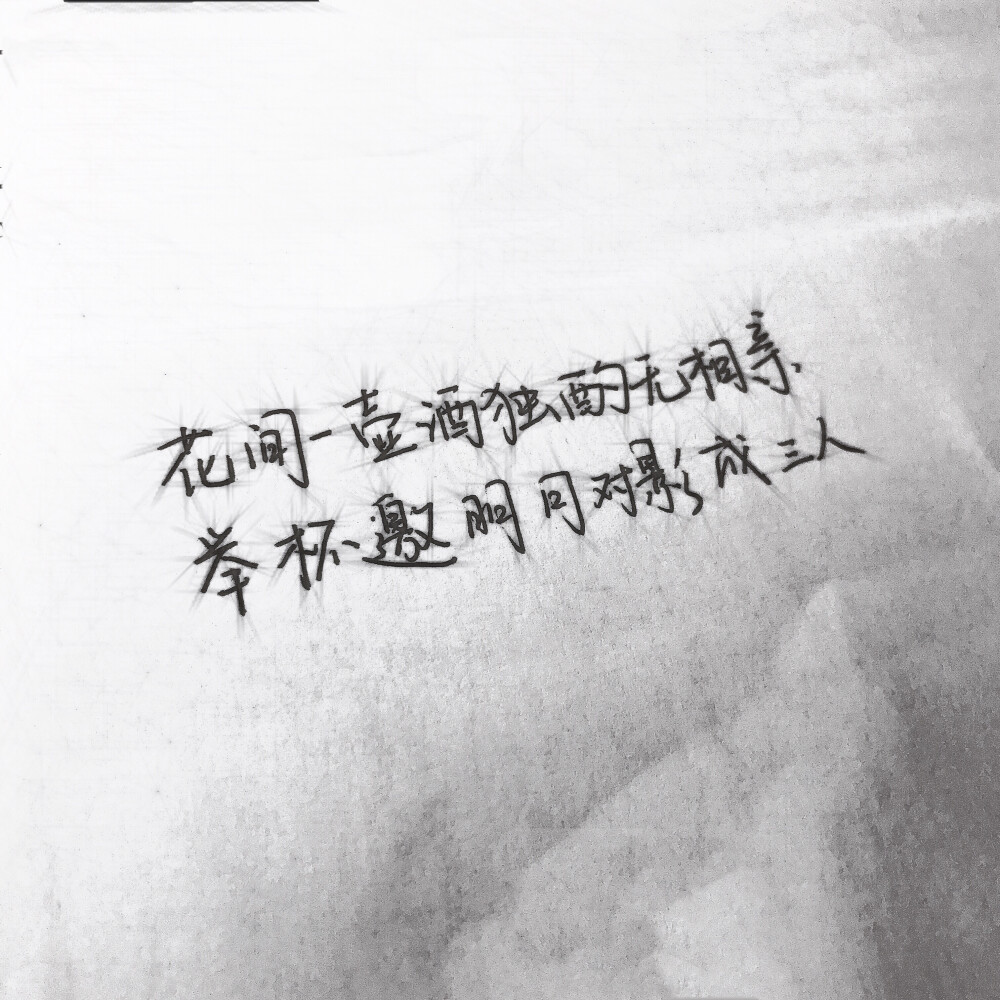 花间一壶酒独酌无相亲
举杯邀明月对影成三人